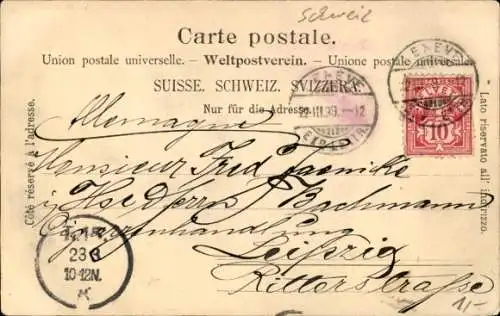 Schweiz
Carte postale.
Union postale universelle. – Weltpostverein. – Unione postale universale.
SUISSE. SCHWEIZ. SVIZZERA.
Nur für die Adresse.
Côté réservé à l'adresse.
Lato riservato all' indirizzo.
GENÈVE
III.99.–12
10
Allemagne
Monsieur Fred
Bachmann
Cigarrenhandlung
Leipzig
Ritterstrasse
23 3
10-12N.
1/-